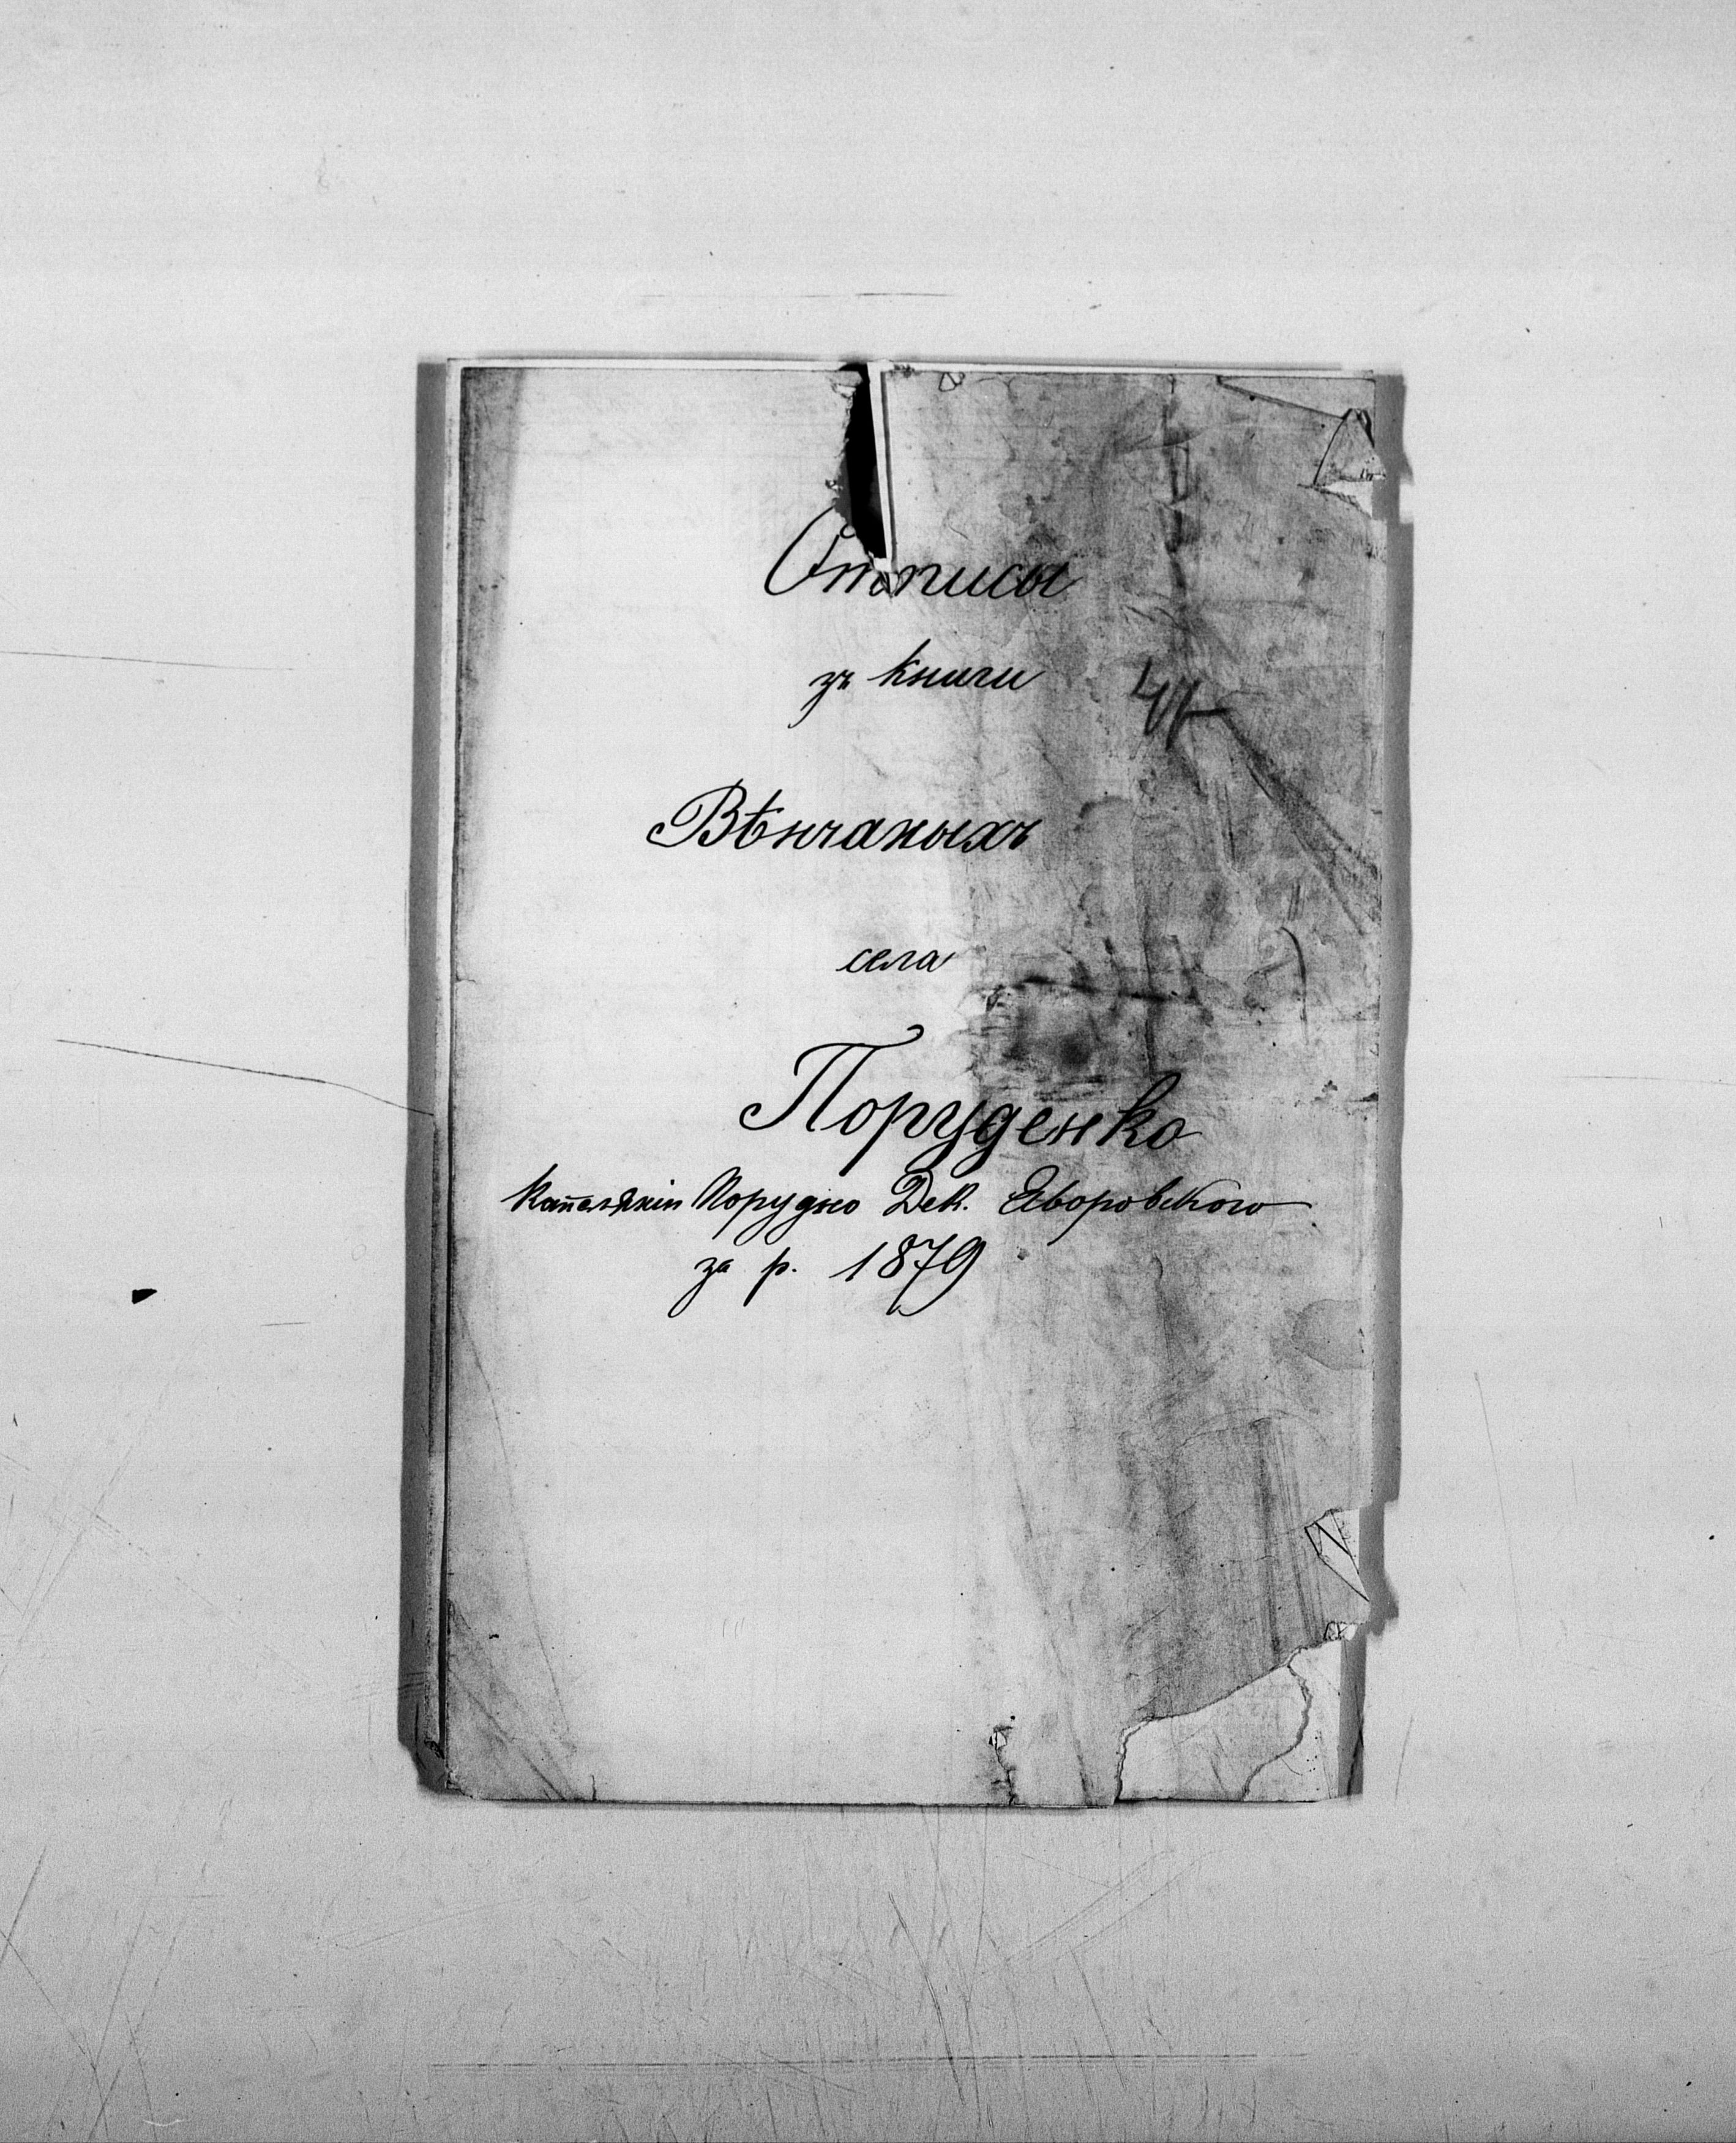 Отписы
зъ книги
Вѣнчаныхъ
села
Поруденко
Капелянiи Порудно Дек. Яворовского
за р. 1879